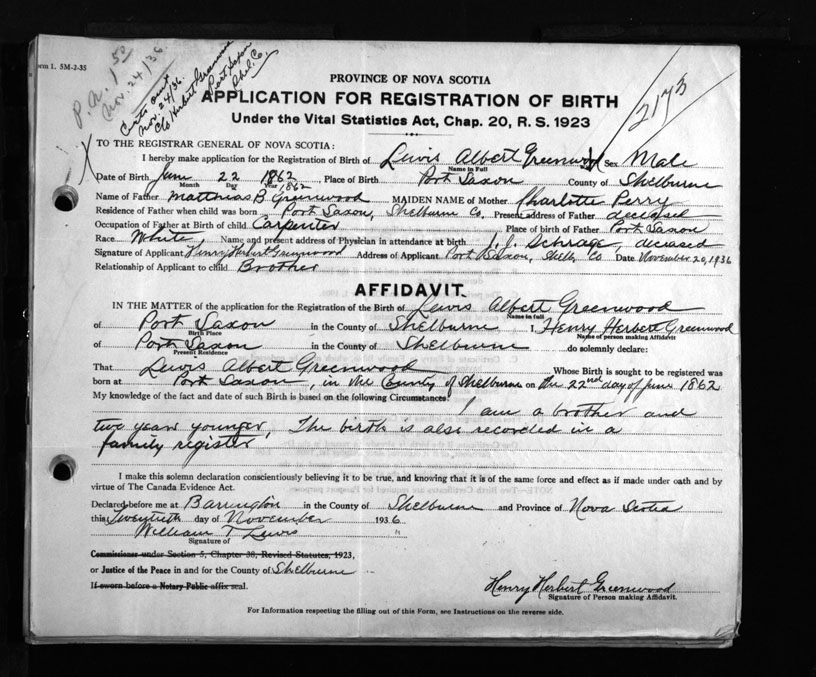 Form 1. 5M-2-35
P.N. 1 50
Nov. 24/36
Certs out
Nov. 24/36.
c/o Herbert Greenwood
Port Saxon
Shel. Co.
2173
PROVINCE OF NOVA SCOTIA
APPLICATION FOR REGISTRATION OF BIRTH
Under the Vital Statistics Act, Chap. 20, R. S. 1923
TO THE REGISTRAR GENERAL OF NOVA SCOTIA:
I hereby make application for the Registration of Birth of Lewis Albert Greenwood Sex Male
Name in Full
Date of Birth June 22 1862 Place of Birth Port Saxon County of Shelburne
Month Day Year 1862
Name of Father Matthias B. Greenwood MAIDEN NAME of Mother Charlotte Perry
Residence of Father when child was born Port Saxon, Shelburne Co. Present address of Father deceased
Occupation of Father at Birth of child Carpenter Place of birth of Father Port Saxon
Race White Name and present address of Physician in attendance at birth Schrage, deceased
Signature of Applicant Henry Herbert Greenwood Address of Applicant Port Saxon, Shelb. Co Date November 20, 1936
Relationship of Applicant to child Brother
AFFIDAVIT.
IN THE MATTER of the application for the Registration of the Birth of Lewis Albert Greenwood
Name in full
of Port Saxon in the County of Shelburne I, Henry Herbert Greenwood
Birth Place Name of person making Affidavit
of Port Saxon in the County of Shelburne do solemnly declare:
Present Residence
That Lewis Albert Greenwood Whose Birth is sought to be registered was
born at Port Saxon, in the County of Shelburne on the 22nd day of June 1862
My knowledge of the fact and date of such Birth is based on the following Circumstances: I am a brother and
two years younger, The birth is also recorded in a
family register
I make this solemn declaration conscientiously believing it to be true, and knowing that it is of the same force and effect as if made under oath and by
virtue of The Canada Evidence Act.
Declared before me at Barrington in the County of Shelburne and Province of Nova Scotia
this Twentieth day of November 1936
William T. Lewis
Signature of
Commissioner under Section 5, Chapter 38, Revised Statutes, 1923,
or Justice of the Peace in and for the County of Shelburne
If sworn before a Notary Public affix seal.
Henry Herbert Greenwood
Signature of Person making Affidavit.
For Information respecting the filling out of this Form, see Instructions on the reverse side.